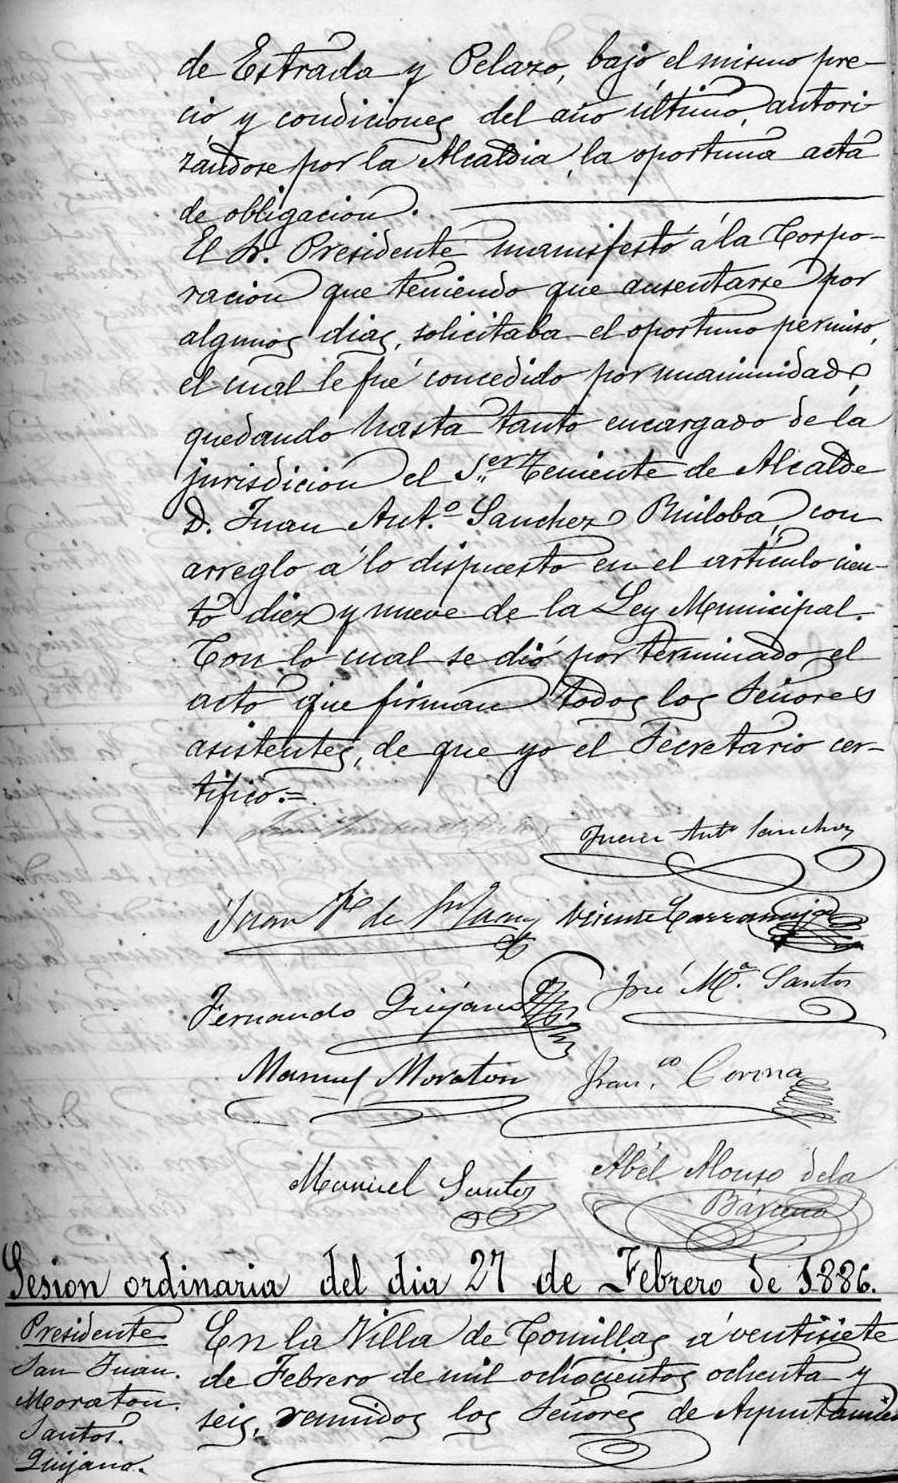 de Estrada y Pelazo, bajo el mismo pre-
cio y condiciones del año último, autori-
zándose por la Alcaldia, la oportuna acta
de obligacion.
El Sr. Presidente manisfestó á la Corpo-
racion que teniendo que ausentarse por
algunos dias, solicitaba el oportuno permiso,
el cual le fué concedido por unanimidad,
quedando hasta tanto encargado de la
jurisdicion el 1.er Teniente de Alcalde
D. Juan Ant.o Sanchez Ruiloba, con
arreglo á lo dispuesto en el artículo cien-
to diez y nueve de la Ley Municipal.
Con lo cual se dió por terminado el
acto que firman todos los Señores
asistentes, de que yo el Secretario cer-
tifico.=
Juan Ant.o Sanchez
Juan de Vicente Carramiga
Fernando Quijano José M.a Santos
Manuel Moraton Fran.co Corona
Manuel Santos Abél Alonso de la
Bárcena
Sesion ordinaria del dia 27 de Febrero de 1886.
Presidente
San Juan.
Moraton.
Santos.
Quijano.
En la Villa de Comillas á ventisiete
de Febrero de mil ochocientos ochenta y
seis, reunidos los Señores de Ayuntamien